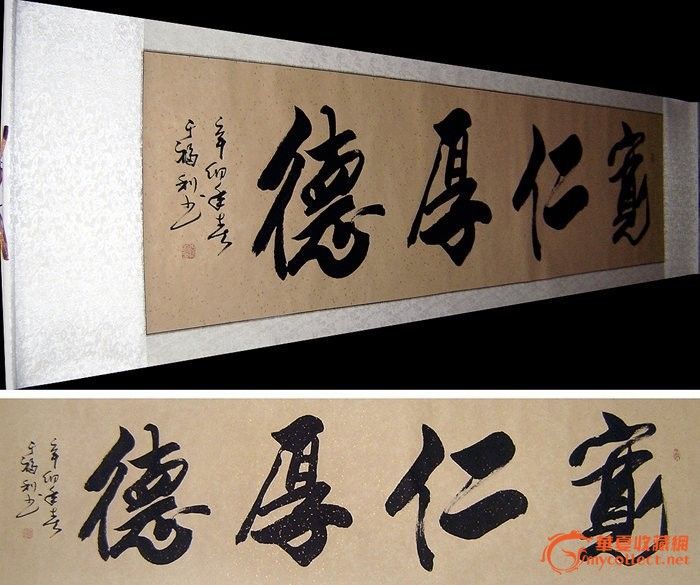 寬仁厚德
辛卯年春
于福利书
寬仁厚德
辛卯年春
于福利书
華夏收藏網
mycollect.net